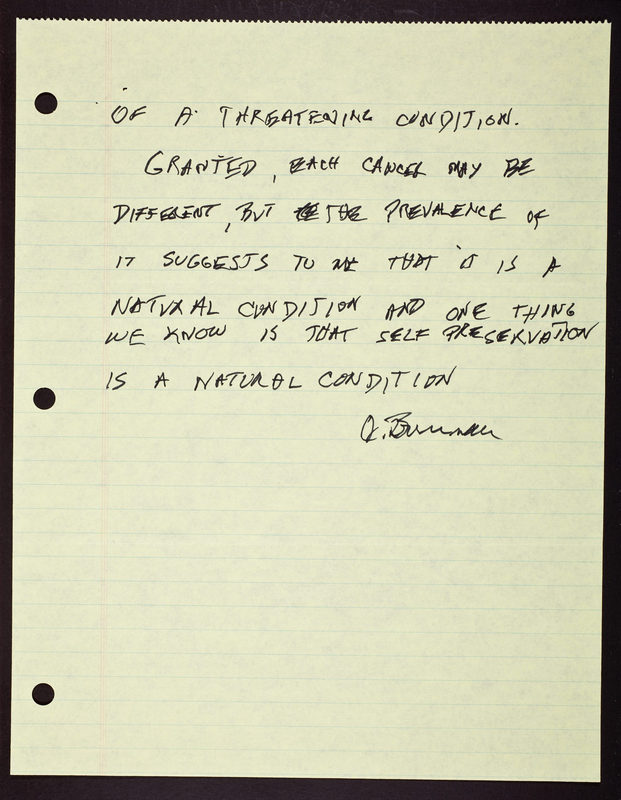 OF A THREATENING CONDITION.
GRANTED, EACH CANCER MAY BE
DIFFERENT, BUT THE PREVALENCE OF
IT SUGGESTS TO ME THAT IT IS A
NATURAL CONDITION AND ONE THING
WE KNOW IS THAT SELF PRESERVATION
IS A NATURAL CONDITION